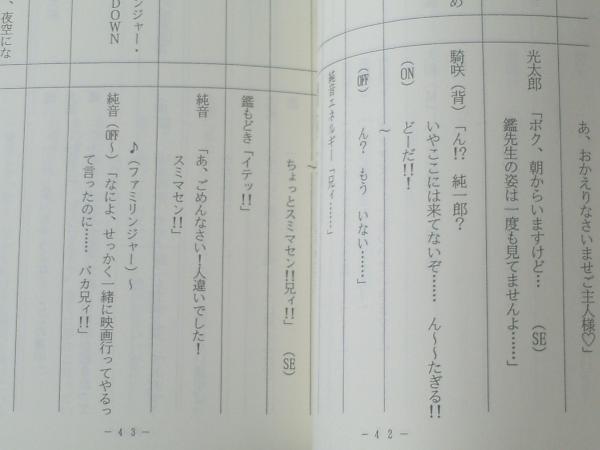 め
あ、おかえりなさいませご主人様♡」
光太郎 「ボク、朝からいますけど… (SE)
鑑先生の姿は一度も見てませんよ……」
騎咲(背)「ん!? 純一郎?
いやここには来てないぞ…… ん~~たぎる!!
(ON) どーだ!!!
~
(OFF) ん? もう いない……」
純音エネルギー「兄ィ……」
- 42 -
~
ちょっとスミマセン!!兄ィ!!」 (SE)
鑑もどき「イテッ!!」
純音 「あ、ごめんなさい!人違いでした!
スミマセン!!」
♪(ファミリンジャー)~
純音(OFF~)「なによ、せっかく一緒に映画行ってやるっ
て言ったのに…… バカ兄ィ!!」
ンジャー・
DOWN
、夜空にな
- 43 -